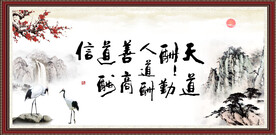 天道
酬勤
人道酬
善商
道酬
信